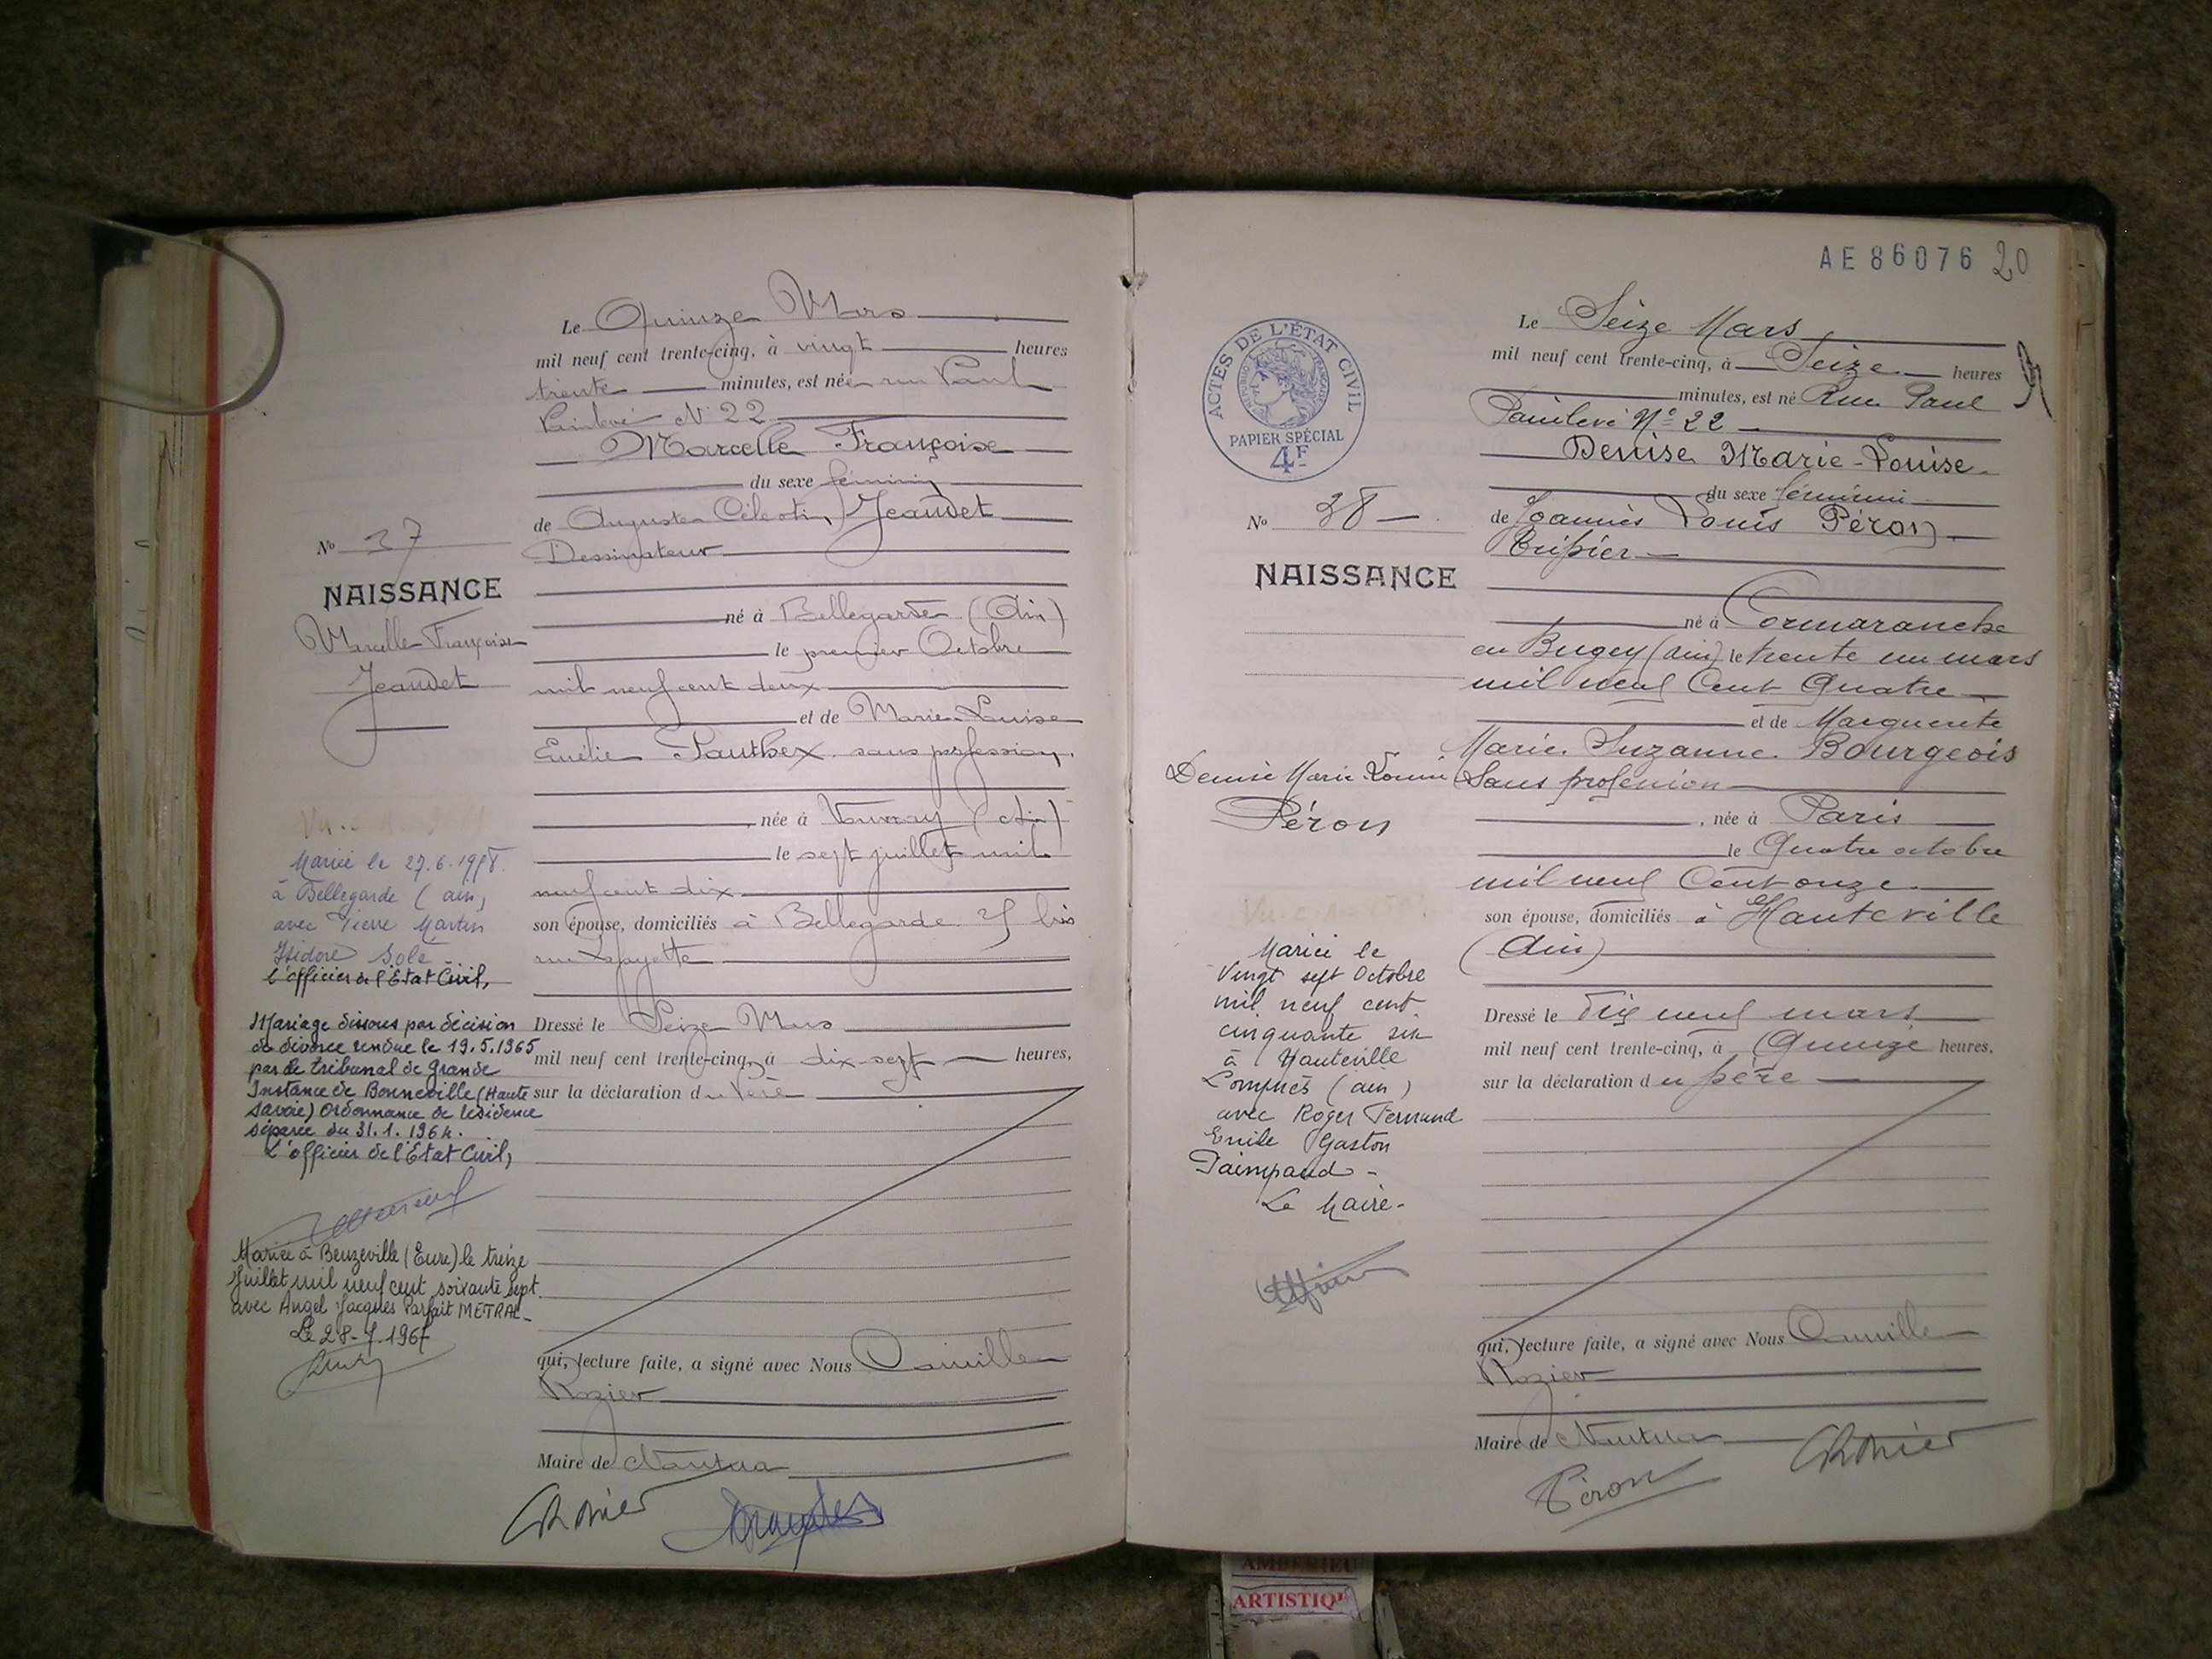 Le Quinze Mars
mil neuf cent trente-cinq, à vingt heures
trente minutes, est née rue Paul
Painlevé N° 22
Marcelle Françoise
du sexe féminin
de Auguste Célestin Jeandet
Dessinateur
né à Bellegarde (Ain)
le premier Octobre
mil neuf cent deux
et de Marie Louise
Emélie Pauthex sans profession.
, née à (Ain)
le sept juillet mil
neuf cent dix
son épouse, domiciliés à Bellegarde bis
rue Lafayette
Dressé le Seize Mars
mil neuf cent trente-cinq, à dix-sept heures,
sur la déclaration du Père
qui, lecture faite, a signé avec Nous Camille
Rozier
Maire de Nantua
No 37
NAISSANCE
Marcelle Françoise
Jeandet
Mariée le 27.6.
à Bellegarde (ain)
avec Pierre Martin
Isidore Solé
l'officier de l'Etat Civil,
Mariage dissous par décision
de divorce rendue le 19.5.1965
par le tribunal de Grande
Instance de Bonneville (Haute
Savoie) Ordonnance de résidence
séparée du 31.1.1964.
L'officier de l'Etat Civil,
Mariée à Beuzeville (Eure) le treize
Juillet mil neuf cent soixante sept
avec Angel Jacques Parfait METRAL
Le 28-7.1967
AE86076 20
ACTES DE L'ÉTAT CIVIL
PAPIER SPÉCIAL
4F
Le Seize Mars
mil neuf cent trente-cinq, à Seize heures
minutes, est né Rue Paul
Painlevé N° 22
Denise Marie-Louise
du sexe féminin
de Joannès Louis Péron
Tripier
né à Cormaranche
en Bugey (ain) le trente un mars
mil neuf Cent Quatre
et de Marguerite
Marie Suzanne Bourgeois
Sans profession
, née à Paris
le Quatre octobre
mil neuf Cent onze
son épouse, domiciliés à Hauteville
(Ain)
Dressé le Dix neuf mars
mil neuf cent trente-cinq, à Quinze heures,
sur la déclaration du père
qui, lecture faite, a signé avec Nous Camille
Rozier
Maire de Nantua
Péron
No 38
NAISSANCE
Denise Marie Louise
Péron
Mariée le
Vingt sept Octobre
mil neuf cent
cinquante six
à Hauteville
Lompnès (ain)
avec Roger Fernand
Emile Gaston
Paimpaud -
Le Maire -
AMBERIEU
ARTISTIQ